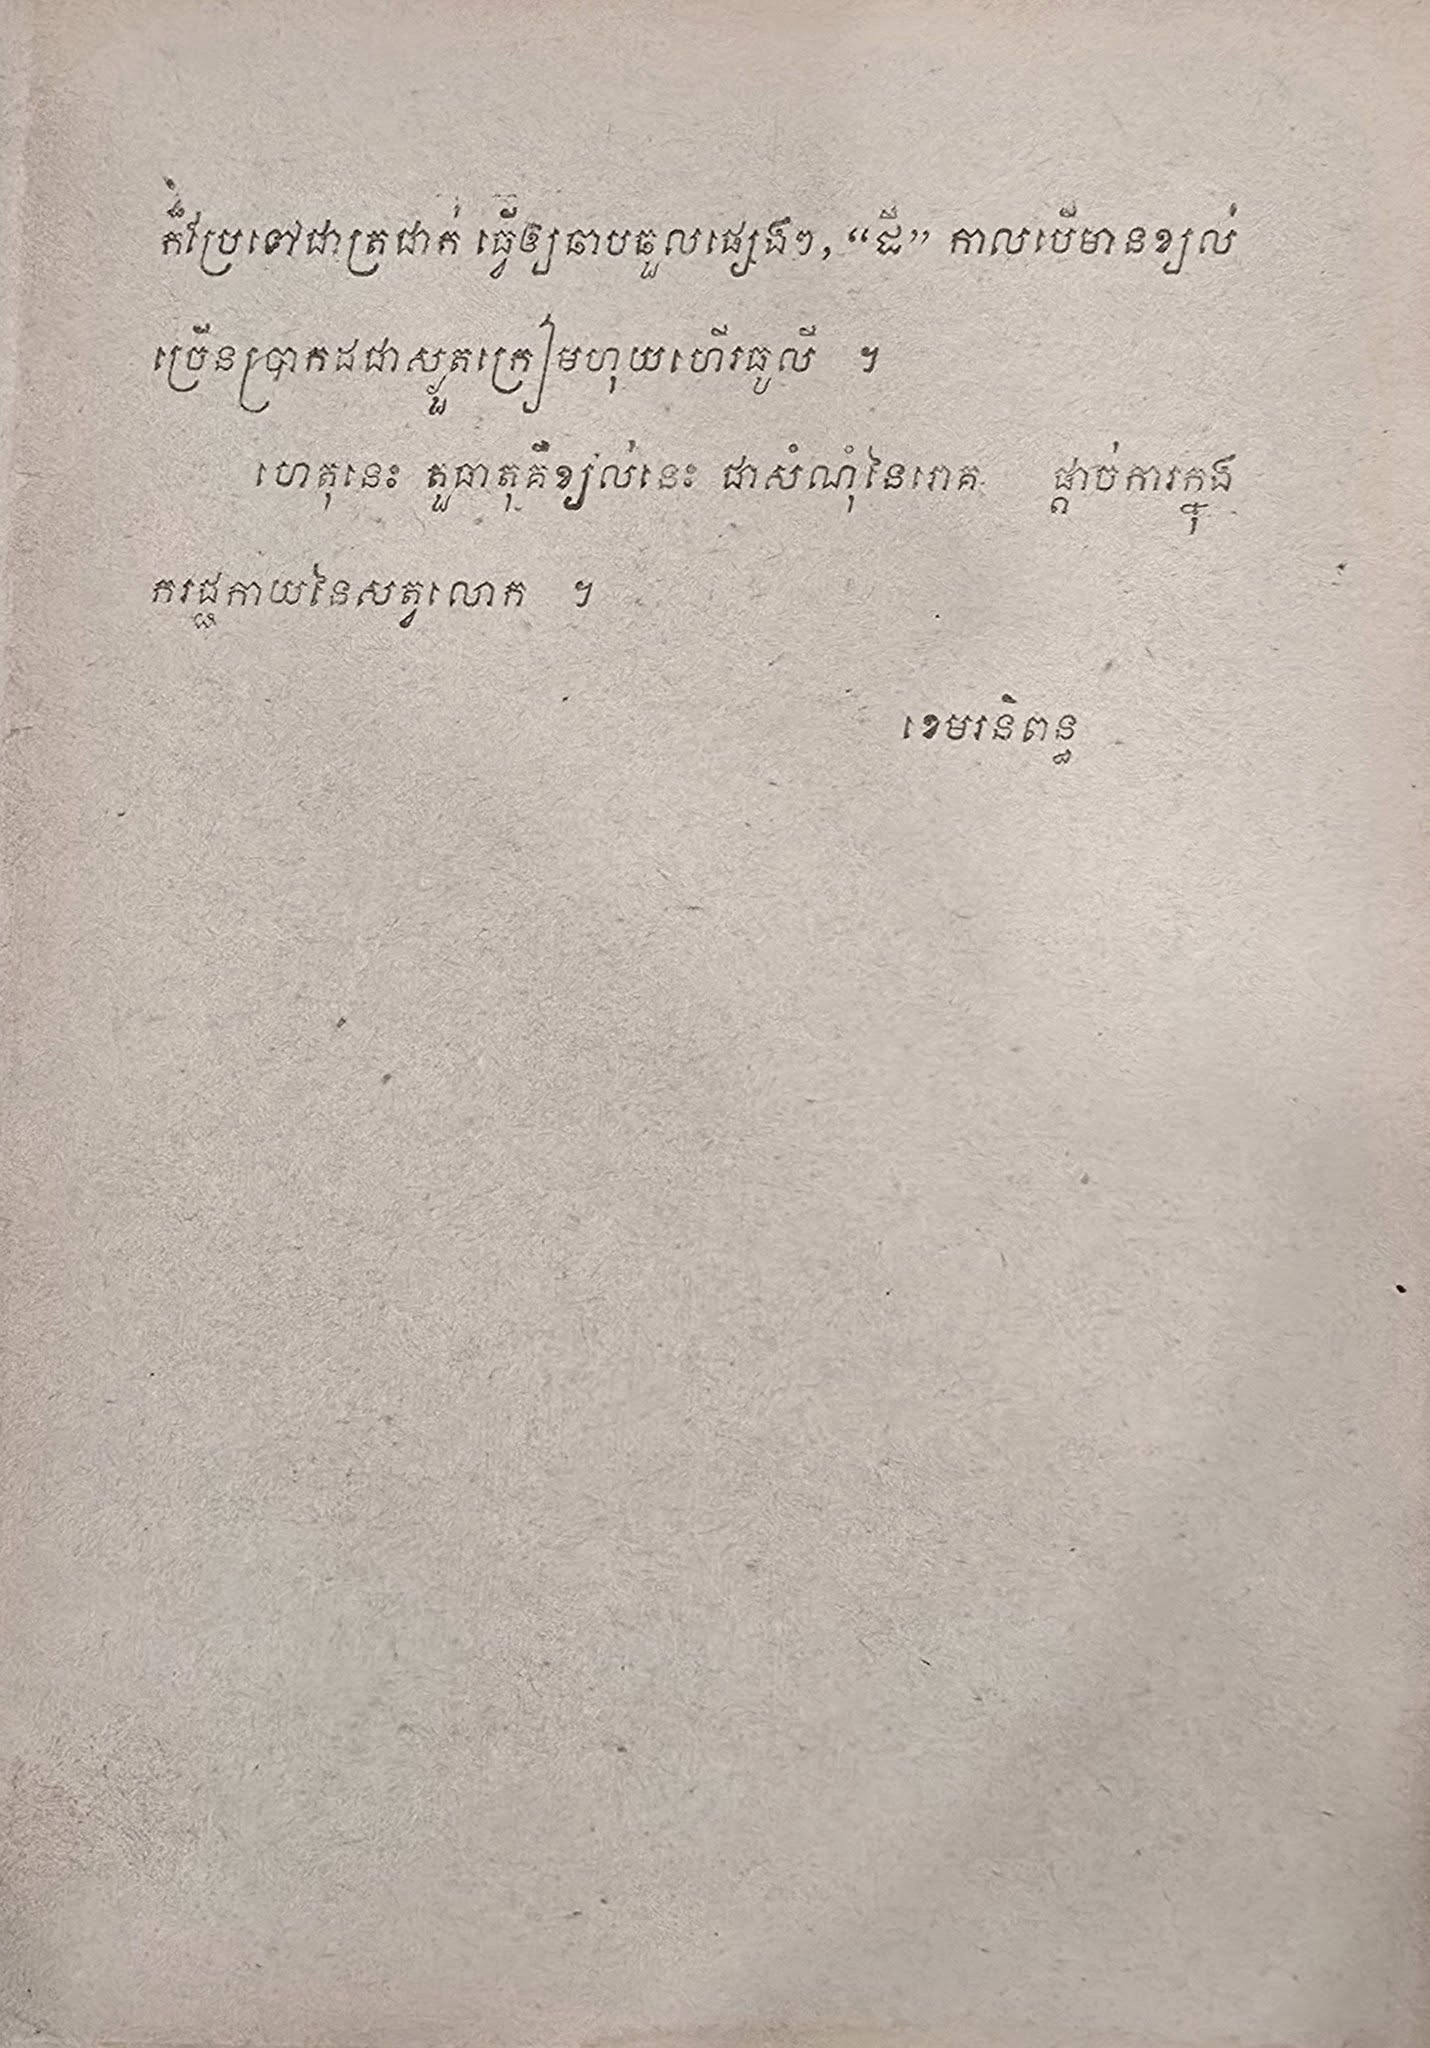 ក៏ប្រែទៅជាត្រជាក់ ធ្វើឲ្យឆាបឆួលផ្សេងៗ, “ដី” កាលបើមានខ្យល់
ច្រើនប្រាកដជាស្ងួតក្រៀមហុយហើរធូលី ។
ហេតុនេះ តួធាតុគឺខ្យល់នេះ ជាសំណុំនៃរោគ ផ្ដាច់ការក្នុង
ករជ្ជកាយនៃសត្វលោក ។
ខេមរនិពន្ធ